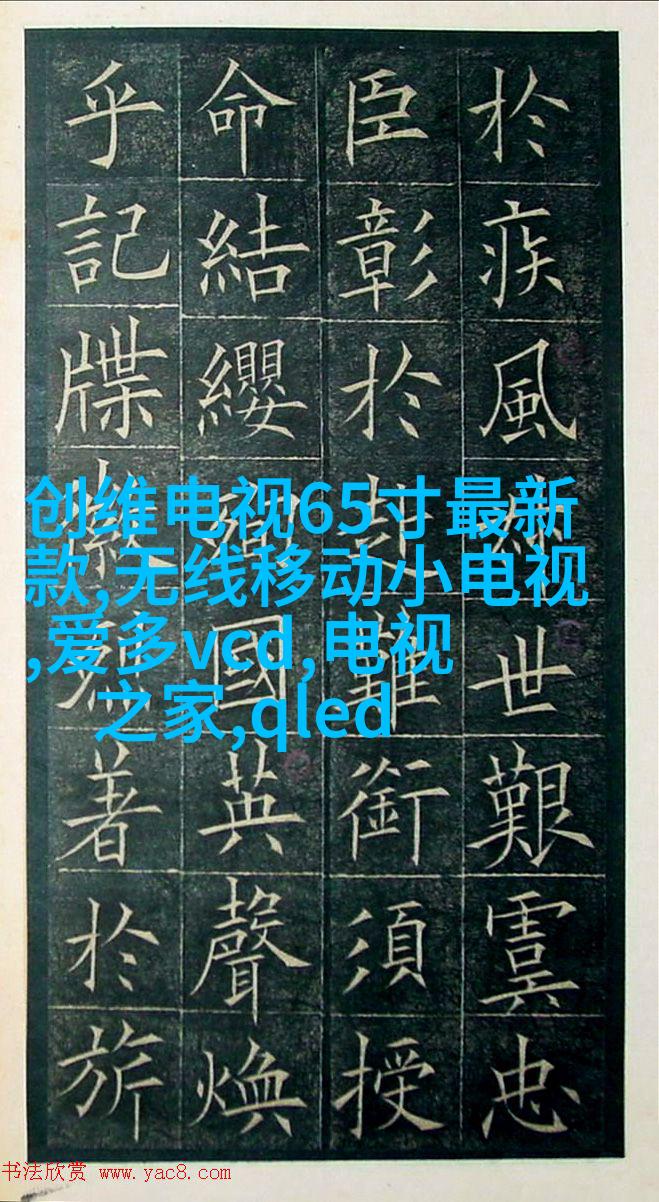 於疾風世艱虞忠
臣彰於難銜須授
命結纓國英聲煥
乎記牒著於旂
创维电视65寸最新
款,无线移动小电视
,爱多vcd,电视
之家,qled
书法欣赏 www.yac8.com